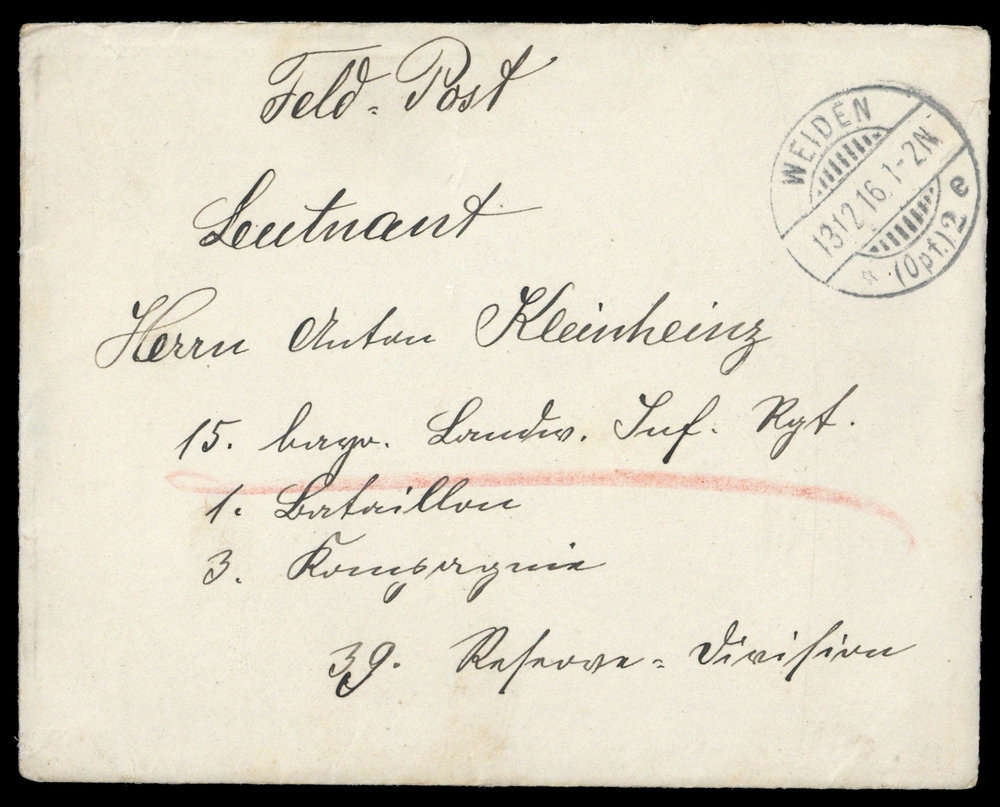 Feld-Post
Leutnant
Herrn Anton Kleinheinz
15. bayr. Landw. Inf. Rgt.
1. Bataillon
3. Kompagnie
39. Reserve-Division
WEIDEN
13 12 16. 1-2N
* (Opf.) 2 e